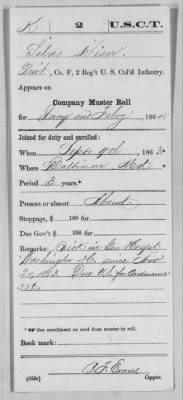 K | 2 | U.S.C.T.
Silas Kiser
Pvt., Co. F, 2 Reg't U. S. Col'd Infantry.
Appears on
Company Muster Roll
for Jany and Feby, 1864.
Joined for duty and enrolled:
When Sept 9th, 1863.
Where Baltimore, Md.
Period 3 years.*
Present or absent Absent
Stoppage, $ 100 for
Due Gov't $ 100 for
Remarks: Sick in Gen Hospt
Washington D.C. since Nov
20, 1863. Due U.S. for Ordnance
*See enrollment on card from muster-in roll.
Book mark:
(358c) Copyist.